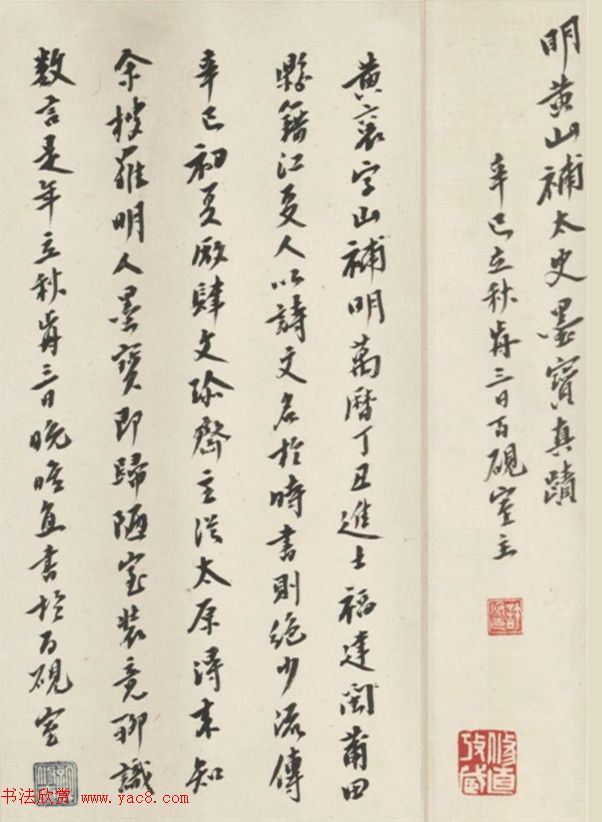 明黄山補太史墨寶真蹟
辛巳立秋前三日百硯室主
黄襄字山補明萬曆丁丑進士福建閩莆田
縣籍江夏人以詩文名於時書則絶少流傳
辛巳初夏廠肆文珍齋主從太原淂來知
余搜羅明人墨寶即歸陋室装竟聊識
數言是年立秋前三日晚晴並書於百硯室
书法欣赏 www.yac8.com